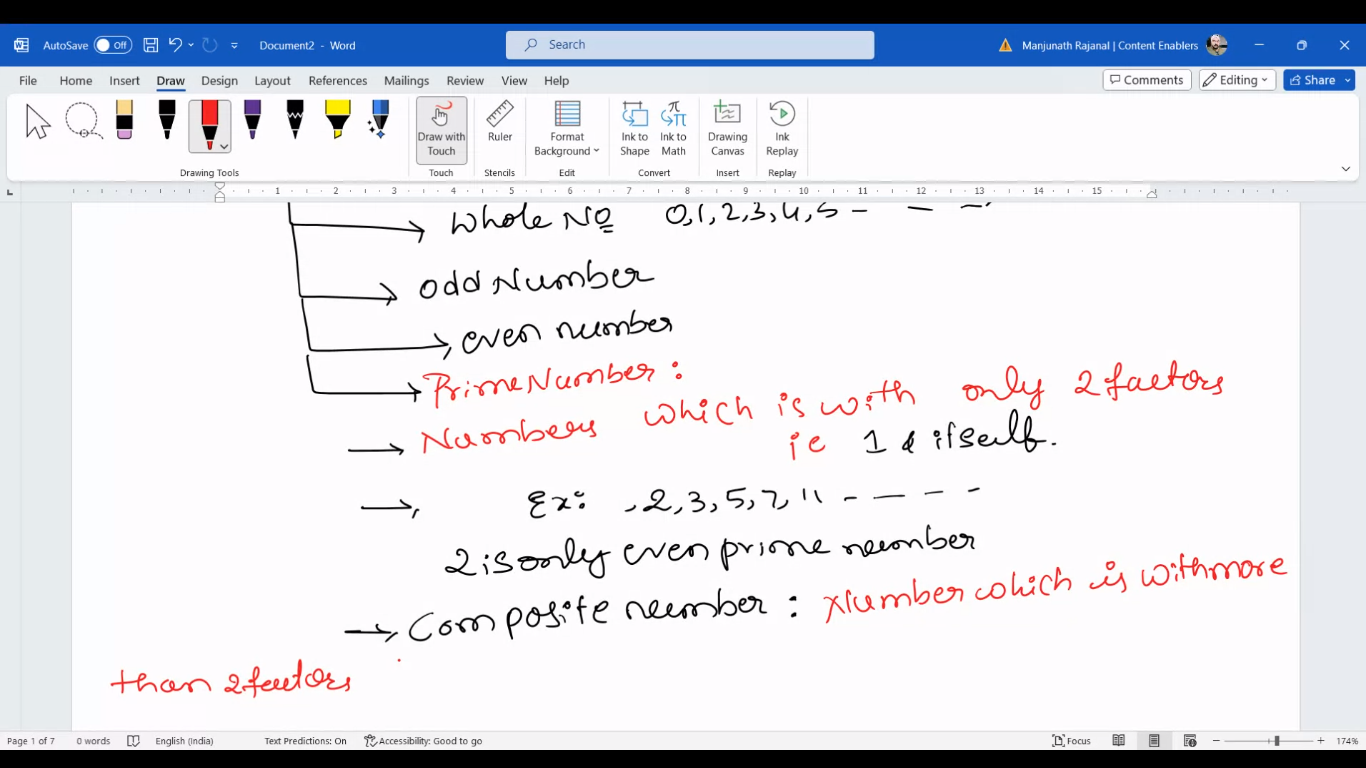 AutoSave Off Document2 - Word Search Manjunath Rajanal | Content Enablers
File Home Insert Draw Design Layout References Mailings Review View Help Comments Editing Share
Draw with Touch Ruler Format Background Ink to Shape Ink to Math Drawing Canvas Ink Replay
Drawing Tools Touch Stencils Edit Convert Insert Replay
1 2 3 4 5 6 7 8 9 10 11 12 13 14 15
Whole No 0,1,2,3,4,5 - - -,
odd Number
even number
Prime Number :
Numbers which is with only 2 factors
ie 1 & itself.
Ex: ,2,3,5,7,11 - - - -
2 is only even prime number
Composite number : Number which is with more
than 2 factors
Page 1 of 7 0 words English (India) Text Predictions: On Accessibility: Good to go Focus 174%